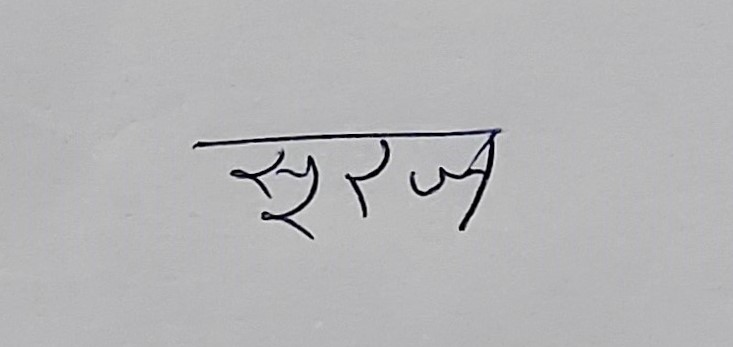 सूरज